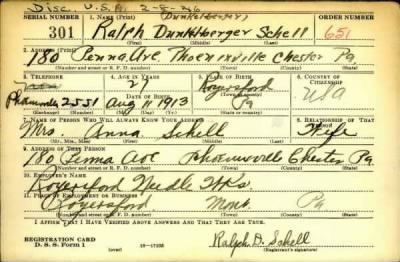 Disc. U.S.A. 2-8-46
(Dunkelberger)
SERIAL NUMBER 1. NAME (Print) ORDER NUMBER
301 Ralph Dunkelberger Schell 651
(First) (Middle) (Last)
2. ADDRESS (Print)
180 Penna. Ave. Phoenixville Chester Pa.
(Number and street or R. F. D. number) (Town) (County) (State)
3. TELEPHONE 4. AGE IN YEARS 5. PLACE OF BIRTH 6. COUNTRY OF CITIZENSHIP
27 Royersford
DATE OF BIRTH
2551 Aug 11 1913 Pa USA
(Exchange) (Number) (Mo.) (Day) (Yr.) (State or country)
7. NAME OF PERSON WHO WILL ALWAYS KNOW YOUR ADDRESS 8. RELATIONSHIP OF THAT PERSON
Mrs. Anna Schell Wife
(Mr., Mrs., Miss) (First) (Middle) (Last)
9. ADDRESS OF THAT PERSON
180 Penna Ave Phoenixville Chester Pa
(Number and street or R. F. D. number) (Town) (County) (State)
10. EMPLOYER'S NAME
Royersford Needle Wks.
11. PLACE OF EMPLOYMENT OR BUSINESS
Royersford Mont. Pa
(Number and street or R. F. D. number) (Town) (County) (State)
I AFFIRM THAT I HAVE VERIFIED ABOVE ANSWERS AND THAT THEY ARE TRUE.
REGISTRATION CARD
D. S. S. Form 1 (over) 16-17105
Ralph D. Schell
(Registrant's signature)